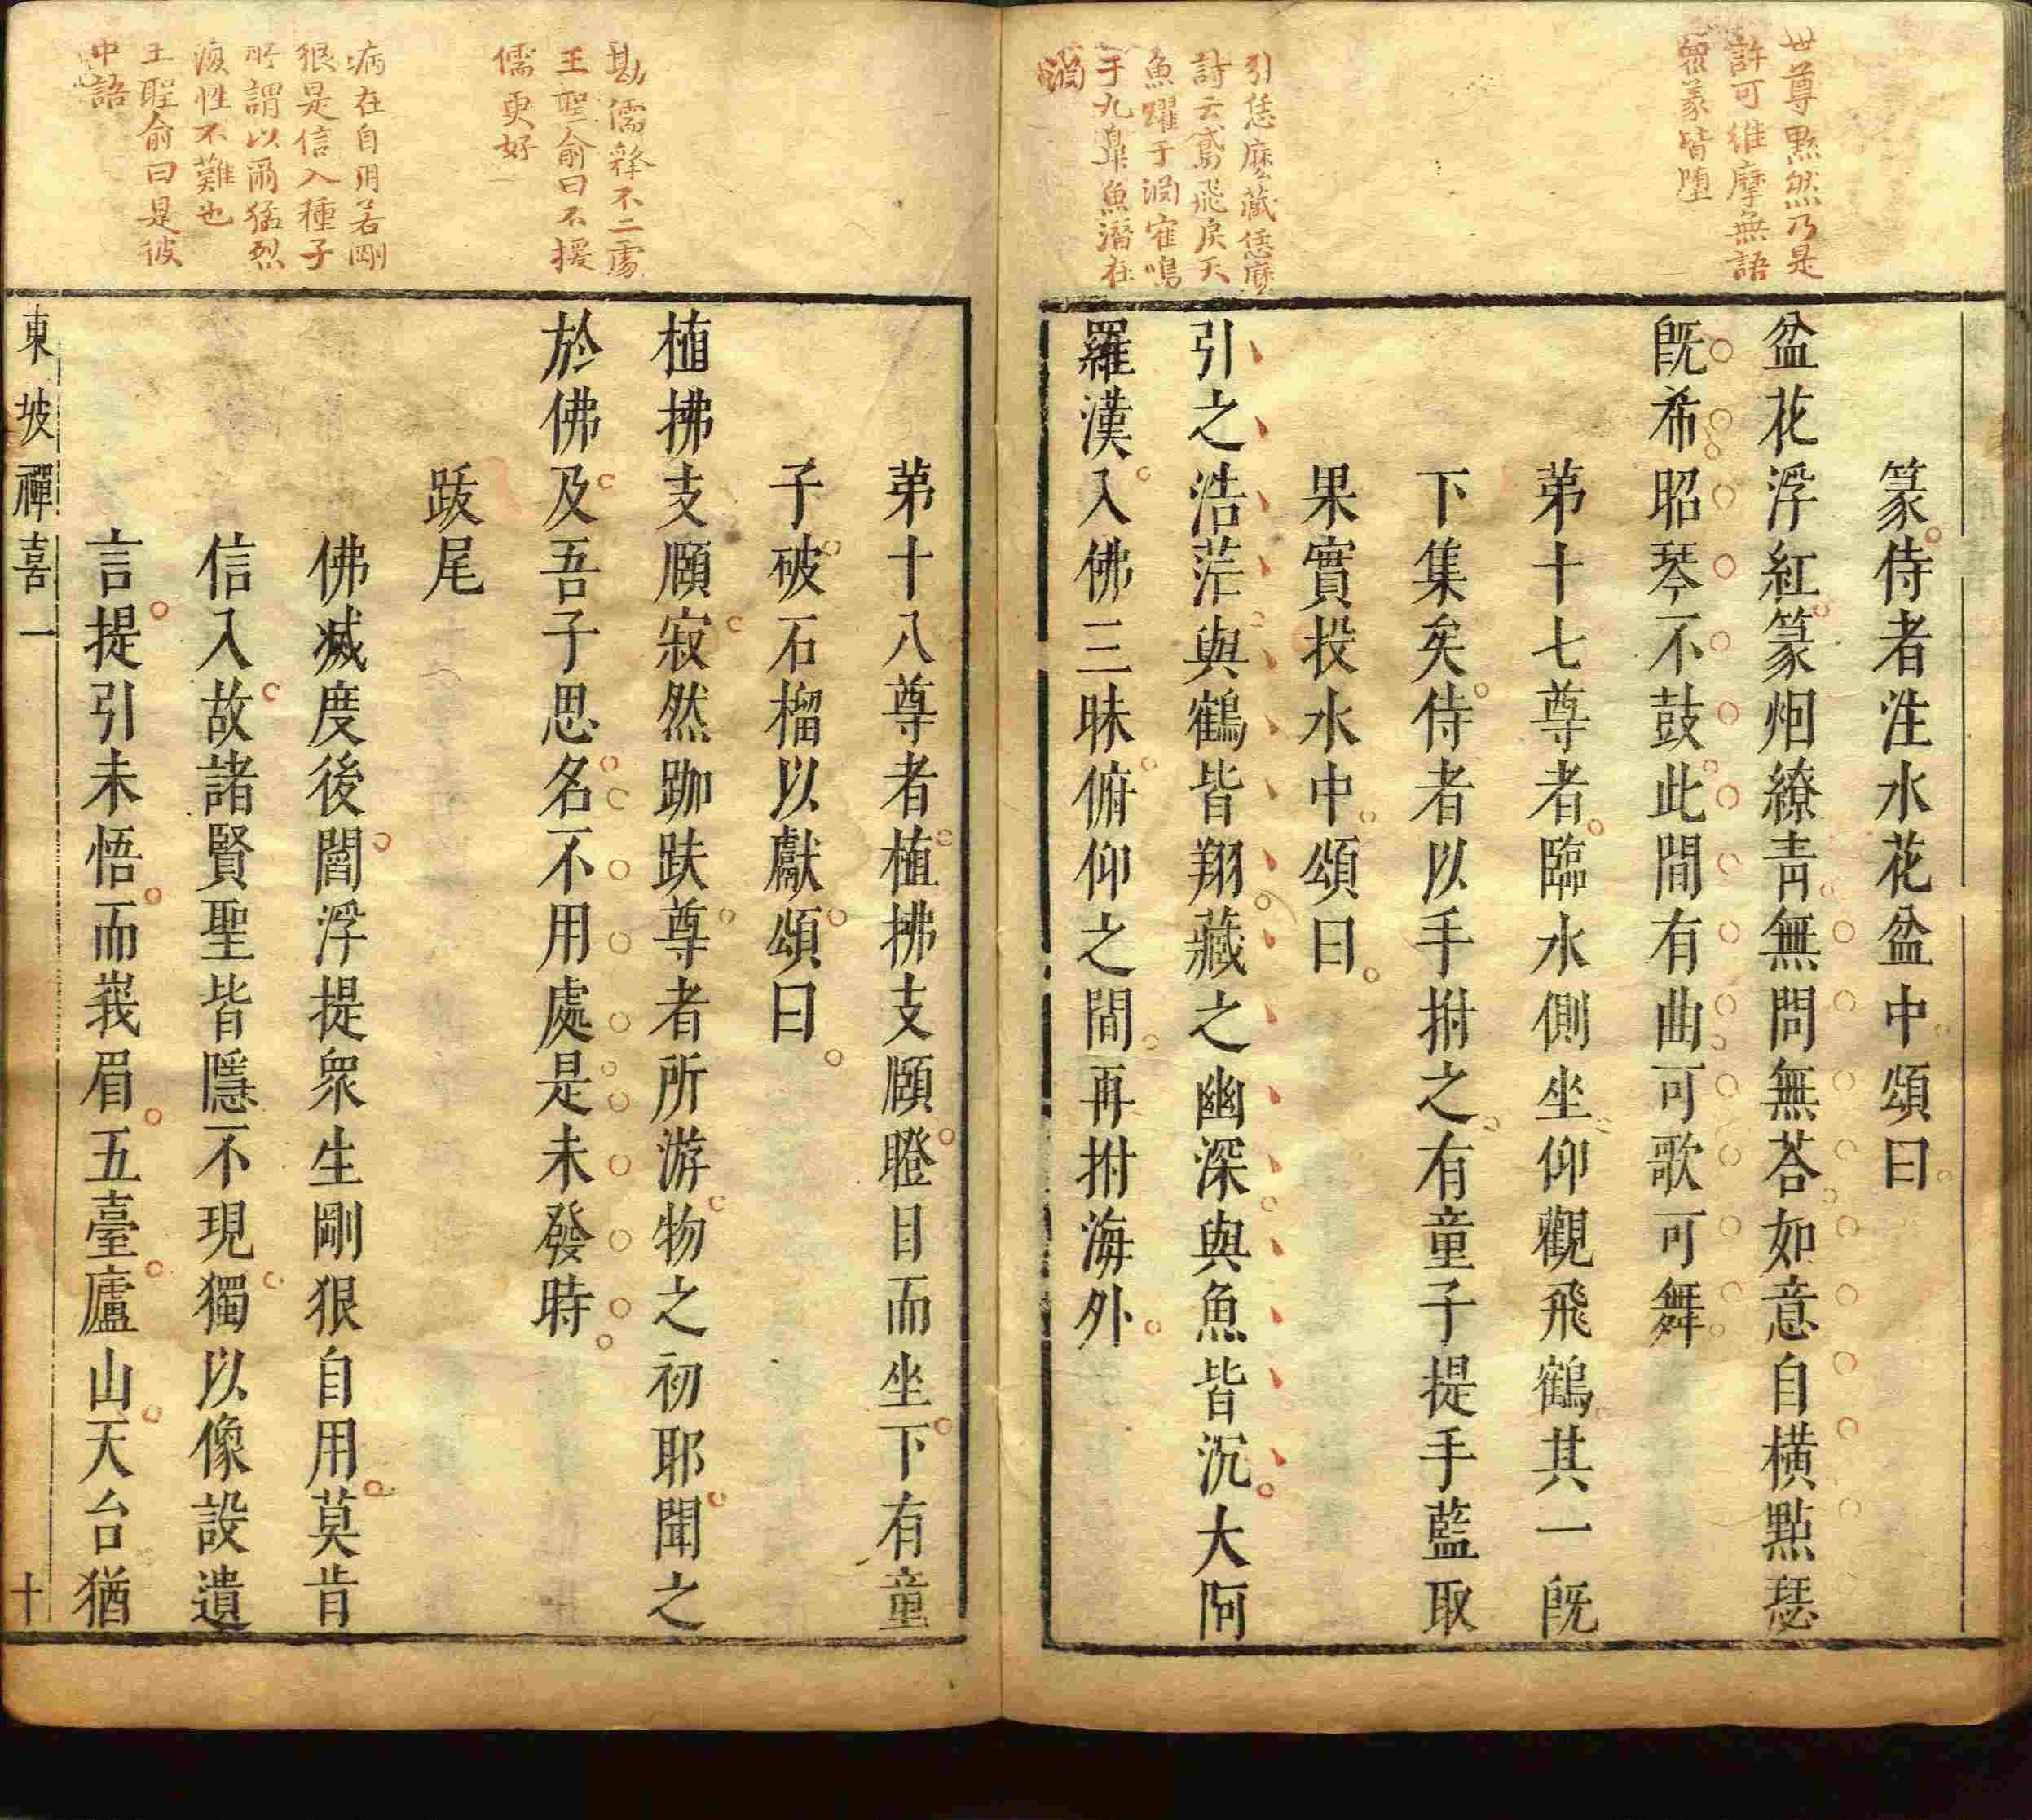 世尊默然乃是
許可維摩無語
眾義皆墮
引恁麽藏恁麽
詩云鳶飛戾天
魚躍于淵寉鳴
于九臯魚潛在
淵
篆侍者注水花盆中頌曰
盆花浮紅篆烟繚青無問無荅如意自橫點瑟
旣希昭琴不鼓此間有曲可歌可舞
苐十七尊者臨水側坐仰觀飛鶴其一旣
下集矣侍者以手拊之有童子提手藍取
果實投水中頌曰
引之浩茫與鶴皆翔藏之幽深與魚皆沉大阿
羅漢入佛三昧俯仰之間再拊海外
勘儒釋不二處
王聖俞曰不援
儒更好
病在自用若剛
狠是信入種子
所謂以爾猛烈
復性不難也
王聖俞曰是彼
中語
苐十八尊者植拂支頤瞪目而坐下有童
子破石榴以獻頌曰
植拂支頤寂然跏趺尊者所游物之初耶聞之
於佛及吾子思名不用處是未發時
跋尾
佛滅度後閻浮提衆生剛狠自用莫肯
信入故諸賢聖皆隱不現獨以像設遺
言提引未悟而峩眉五臺廬山天台猶
東坡禪喜一
十